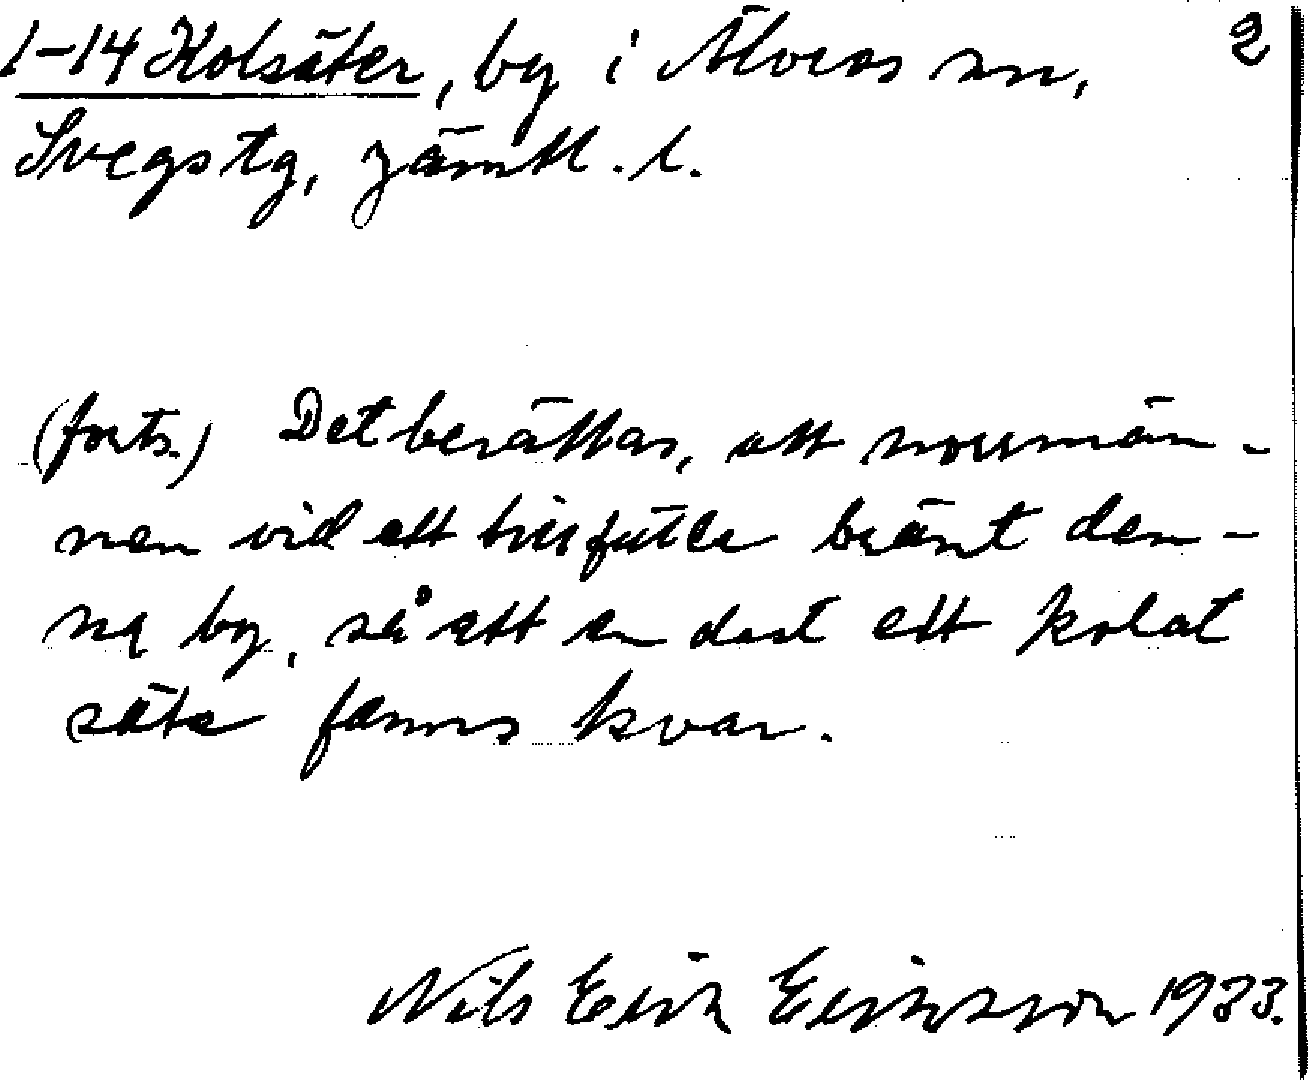 1-14 Kolsäter, by i Älvros sn, 2
Svegs tg, Jämtl. l.
(forts.) Det berättas, att norrmän-
nen vid ett tillfälle bränt den-
na by, så att endast ett kolat
säte fanns kvar.
Nils Erik Eriksson 1933.